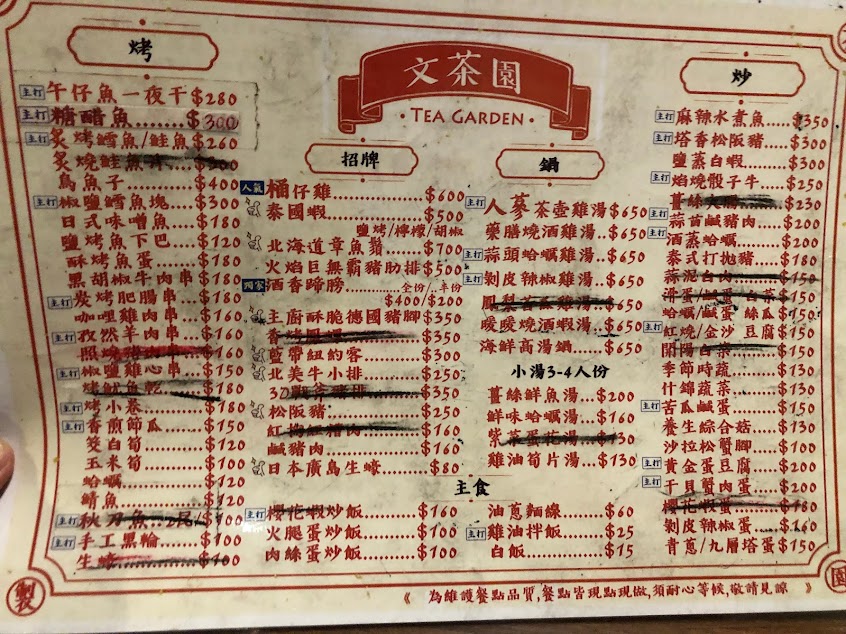 文茶園
TEA GARDEN
烤
主打 午仔魚一夜干 $280
主打 糖醋魚......$300
主打 炙烤鱈魚/鮭魚 $260
炙燒鮭魚 $200
烏魚子......$400
主打 椒鹽鱈魚塊......$300
日式味噌魚......$180
鹽烤魚下巴......$120
酥烤魚蛋......$180
黑胡椒牛肉串...$180
主打 炭烤肥腸串......$180
咖哩雞肉串......$160
主打 孜然羊肉串......$160
照燒豬肉串......$160
主打 椒鹽雞心串......$150
烤魷魚乾......$180
主打 烤小卷......$180
主打 香煎節瓜......$150
筊白筍......$120
玉米筍......$100
蛤蠣......$120
鯖魚......$120
主打 秋刀魚
主打 手工黑輪......$100
生蠔......$100
招牌
人氣 桶仔雞......$600
泰國蝦......$500
鹽烤/檸檬/胡椒
北海道章魚鬚......$700
火焰巨無霸豬肋排...$500
獨家 酒香蹄膀......全份/...半份
$400/$200
主廚酥脆德國豬腳 $350
香烤 $350
藍帶紐約客......$300
北美牛小排......$250
$350
松阪豬......$250
紅 糟肉......$160
鹹豬肉......$160
日本廣島生蠔......$80
鍋
主打 人蔘茶壺雞湯 $650
藥膳燒酒雞湯...$650
主打 蒜頭蛤蠣雞湯...$650
主打 剝皮辣椒雞湯...$650
鳳梨苦瓜雞湯...$650
暖暖燒酒蝦湯...$650
海鮮高湯鍋......$650
小湯3-4人份
薑絲鮮魚湯...$200
鮮味蛤蠣湯...$160
紫菜蛋花湯...$130
雞油筍片湯...$130
主食
主打 櫻花蝦炒飯......$160
火腿蛋炒飯......$100
肉絲蛋炒飯......$100
油蔥麵線......$60
主打 雞油拌飯......$25
白飯......$15
炒
主打 麻辣水煮魚...$350
主打 塔香松阪豬...$300
鹽蒸白蝦......$300
主打 焰燒骰子牛...$250
薑絲 $230
主打 蒜苗鹹豬肉...$200
主打 酒蒸蛤蠣......$200
泰式打拋豬......$180
蒜泥白肉......$150
皮蛋/鹹蛋 白菜 $150
蛤蠣/鹹蛋 絲瓜 $150
主打 紅燒/金沙 豆腐 $150
開陽白菜......$150
季節時蔬......$130
什錦蔬菜......$130
主打 苦瓜鹹蛋......$150
養生綜合菇......$130
沙拉松蟹腳......$100
主打 黃金蛋豆腐......$200
主打 干貝蟹肉蛋......$200
櫻花蝦蛋......$180
剝皮辣椒蛋......$160
青蔥/九層塔蛋 $150
《 為維護餐點品質,餐點皆現點現做,須耐心等候,敬請見諒 》
製
園